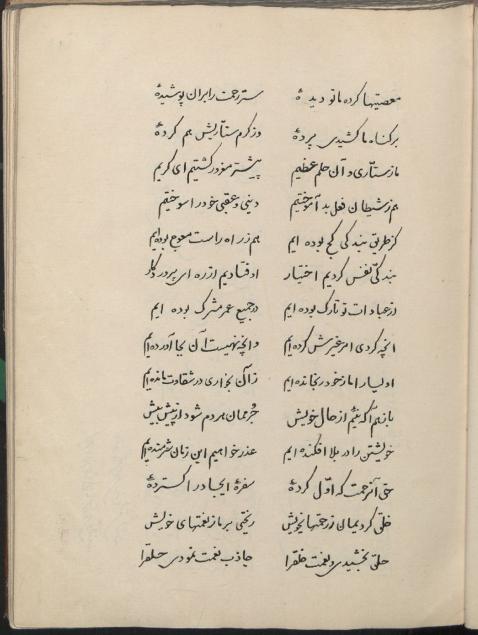 معصیتها کرده ما تو دیدهٔ ستر رحمت را بران پوشیدهٔ
بر گناه ما کشیدی پردهٔ وز کرم ستاریش هم کردهٔ
ما ز ستاری و آن حلم عظیم بیشتر مغرور گشتیم ای کریم
هم ز شیطان فعل بد آموختیم دینی و عقبی خود را سوختیم
کز طریق بندگی کج بوده ایم هم ز راه راست معوج بوده ایم
بندگی نفس کردیم اختیار اوفتادیم از ره ای پروردگار
در عبادات تو تارک بوده ایم در جمیع عمر مشرک بوده ایم
آنچه کردی امر غیرش کرده ایم وانچه نهیست آن بجا آورده ایم
اولیا را ما ز خود رنجانده ایم زان بخواری در شقاوت مانده ایم
باز هم آگه نئیم از حال خویش جرممان هر دم شود از پیش بیش
خویشتن را در بلا افکنده ایم عذر خواهیم این زمان شرمنده ایم
حق آنرحمت که اول کردهٔ سفرهٔ ایجاد را گستردهٔ
خلق کردیمان ز رحمتهای خویش ریختی بر ما ز نعمتهای خویش
حلق بخشیدی و نعمت خلق را جاذب نعمت نمودی حلق را